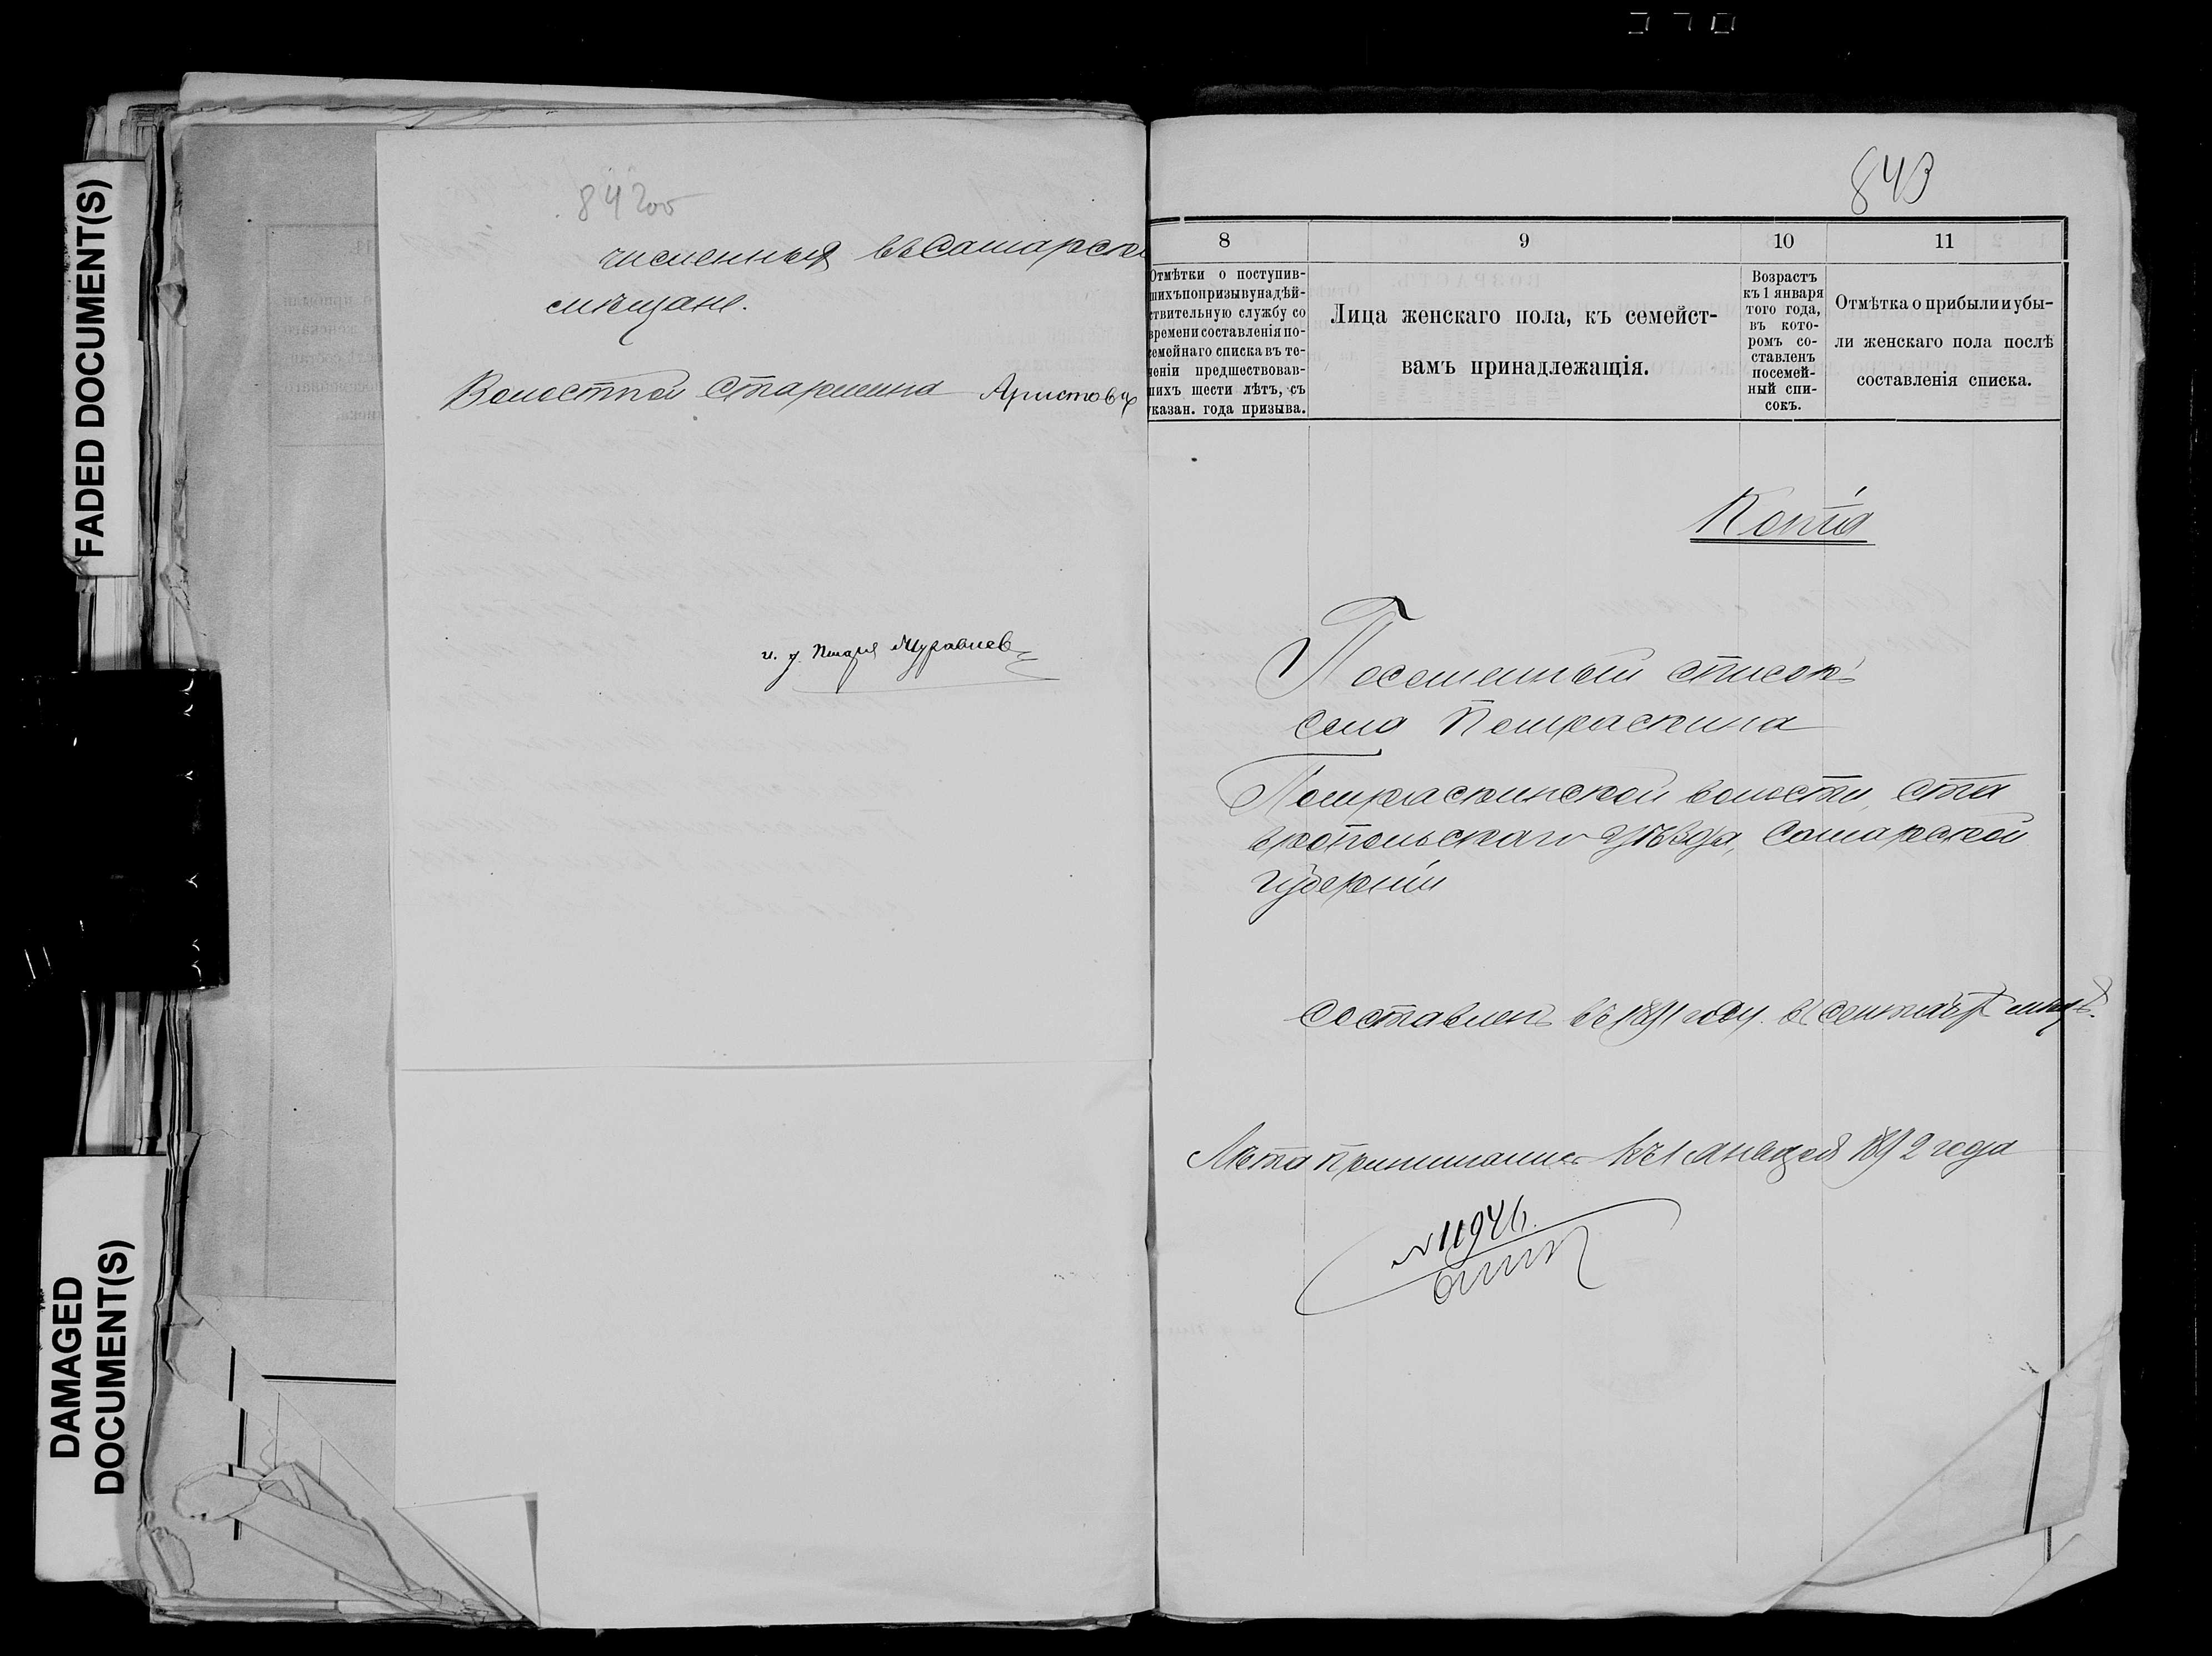 FADED DOCUMENT(S)
DAMAGED
DOCUMENT(S)
842об
численныя въ Самарскі
е мѣщане.
Волостной Старшина Аристовъ
и. д. Писаря Муравлев
843
8
9
10
11
Отмѣтки о поступив-
шихъ по призыву на дѣй-
ствительную службу со
времени составленія по-
семейнаго списка въ те-
ченіи предшествовав-
шихъ шести лѣтъ, съ
указан. года призыва.
Лица женскаго пола, къ семейст-
вамъ принадлежащія.
Возрастъ
къ 1 января
того года,
въ кото-
ромъ со-
ставленъ
посемей-
ный спи-
сокъ.
Отмѣтка о прибыли и убы-
ли женскаго пола послѣ
составленія списка.
Копія
Посемейный списокъ
села Помряскина
Помряскинской волости, Ста
вропольскаго уѣзда, Самарской
губерніи
Составленъ въ 1891 году. въ сентябрѣ мѣсяцѣ.
Лѣта 1892 года
№ 11946.